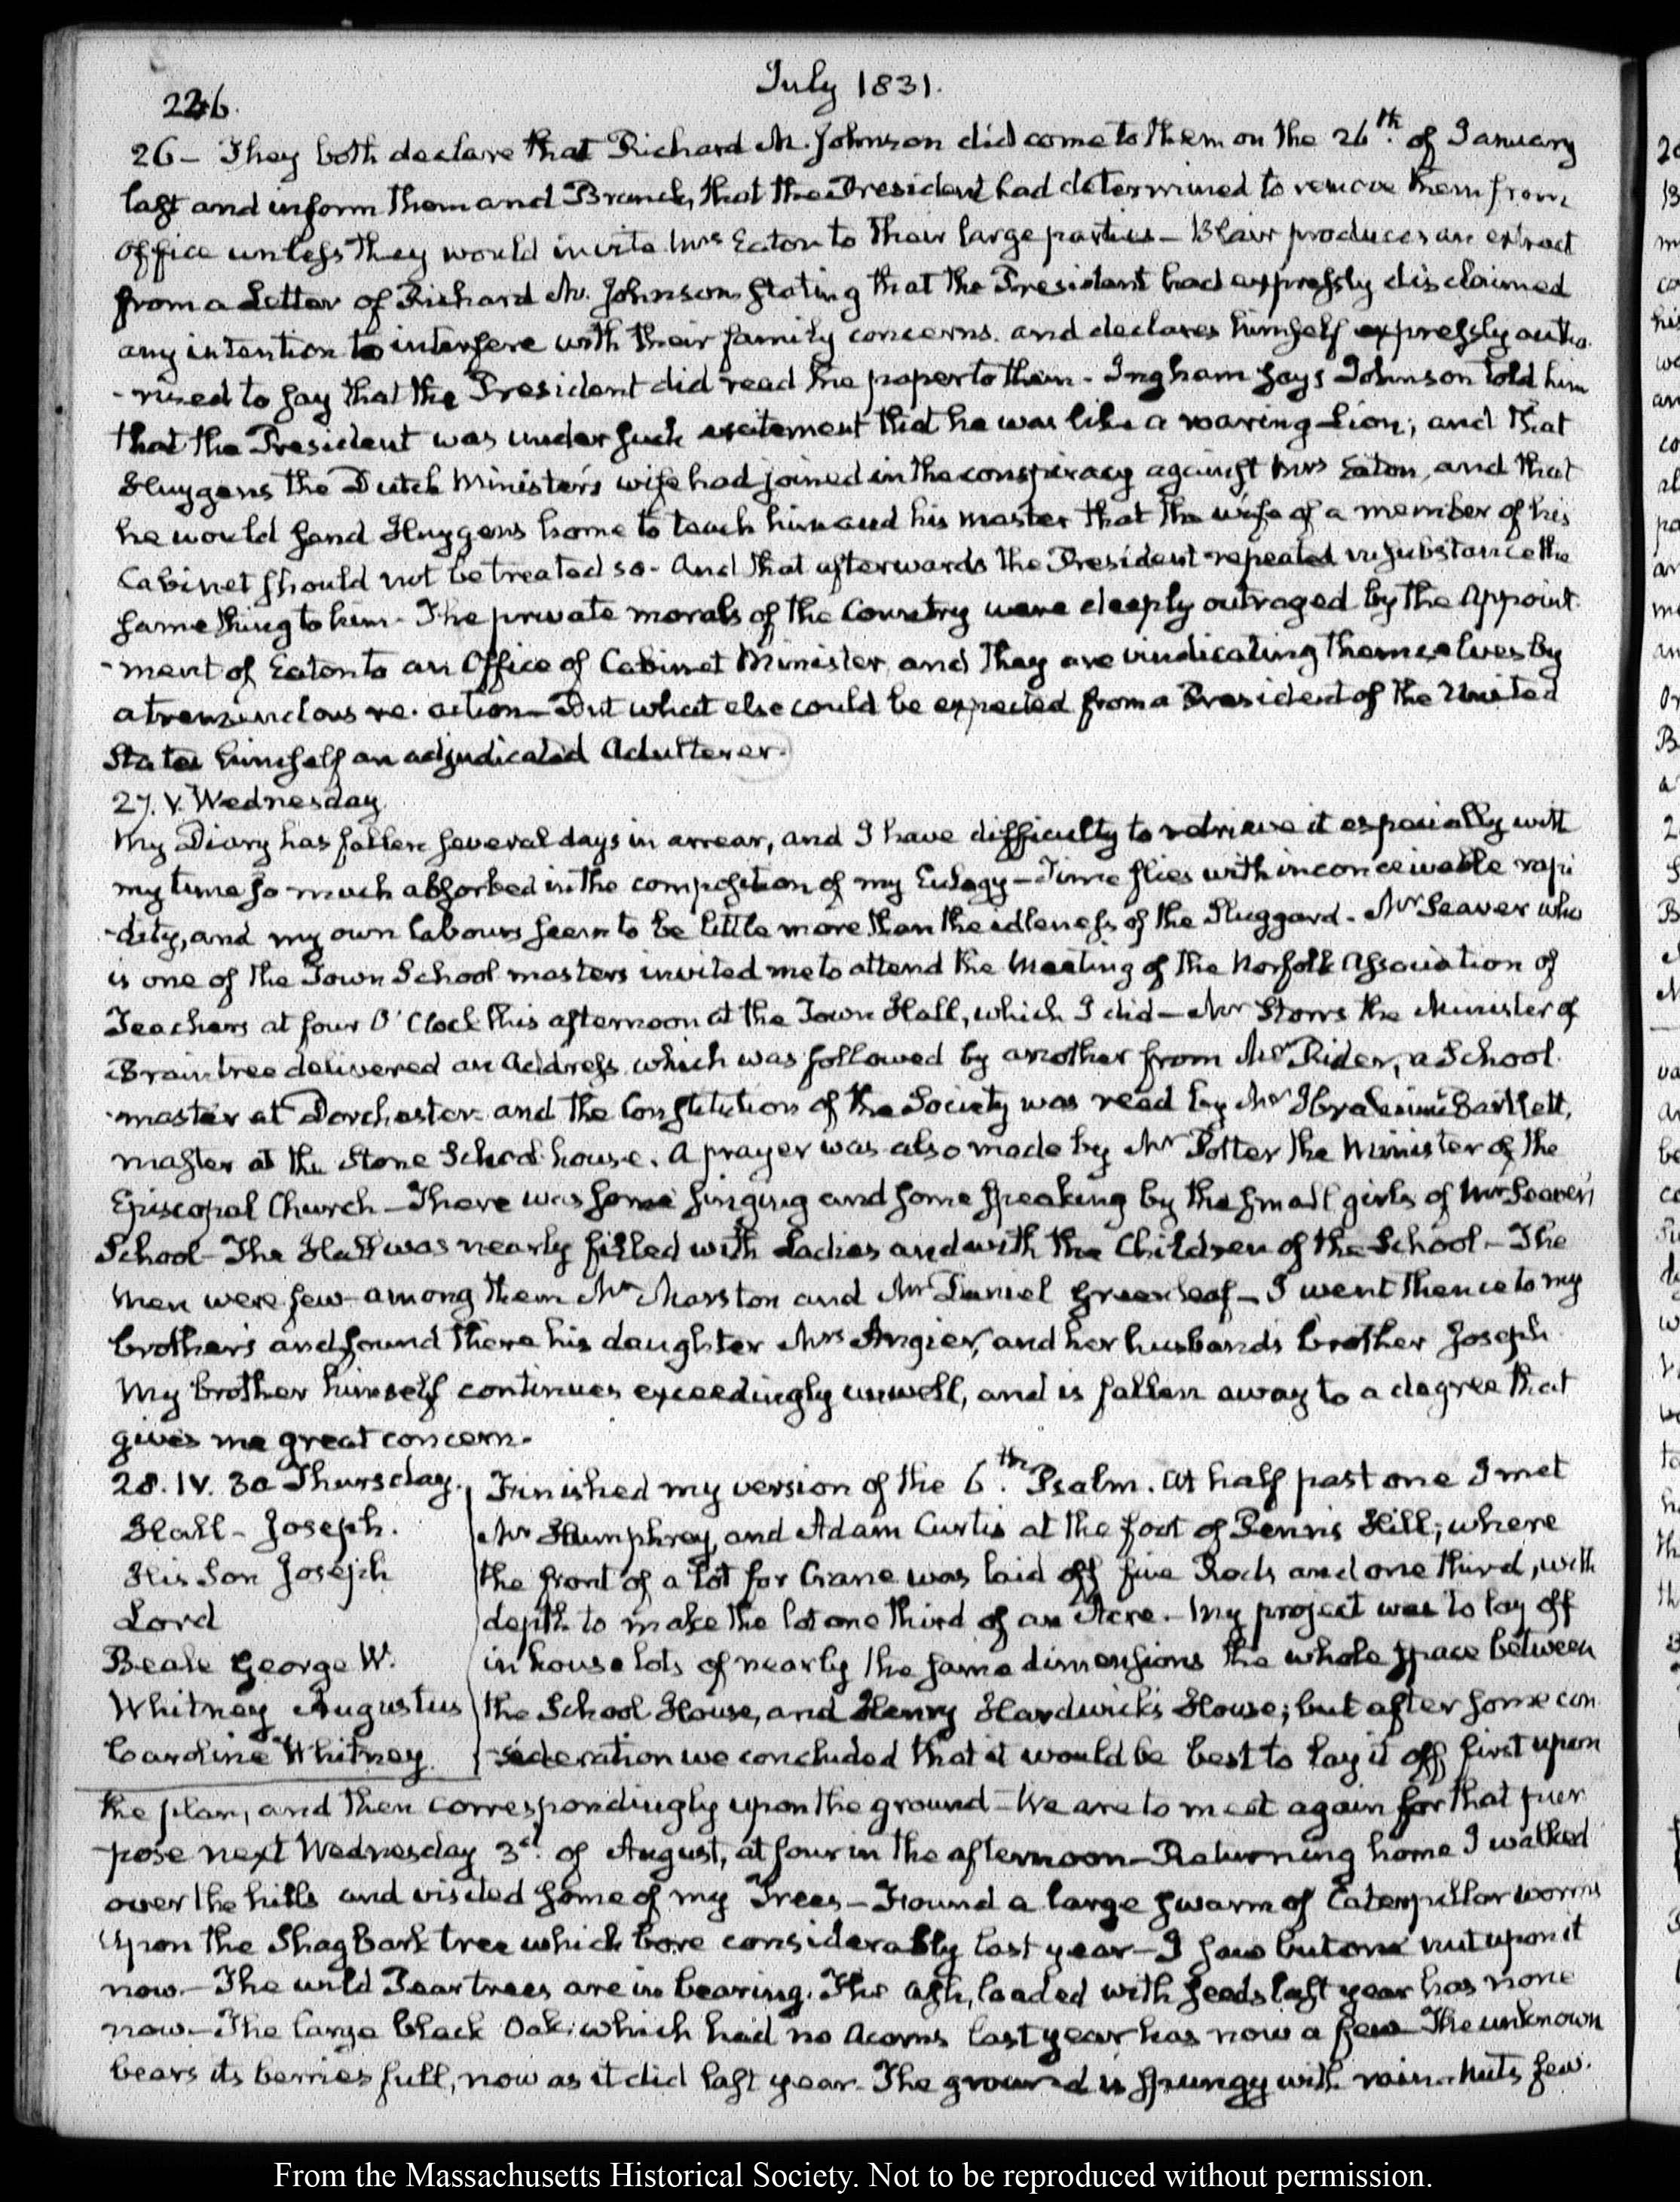 226.
July 1831.
26 – They both declare that Richard M. Johnson did come to them on the 26th. of January
last and inform them and Branch, that the President had determined to remove them from
Office unless they would invite Mrs Eaton to their large parties – Blair produces an extract
from a Letter of Richard M. Johnson stating that the President had expressly disclaimed
any intention to interfere with their family concerns. and declares himself expressly autho
-rised to say that the President did read the paper to them – Ingham says Johnson told him
that the President was under such excitement that he was like a roaring Lion; and that
Huygens the Dutch Minister's wife had joined in the conspiracy against Mrs Eaton, and that
he would send Huygens home to teach him and his master that the wife of a member of his
Cabinet should not be treated so – And that afterwards the President repeated in substance the
same thing to him – The private morals of the Country were deeply outraged by the Appoint-
-ment of Eaton to an Office of Cabinet Minister, and they are vindicating themselves by
a tremendous re-action – But what else could be expected from a President of the United
States himself an adjudicated Adulterer.
27. V. Wednesday.
My Diary has fallen several days in arrear, and I have difficulty to retrieve it especially with
my time so much absorbed in the composition of my Eulogy – Time flies with inconceivable rapi
-dity, and my own labours seem to be little more than the idleness of the Sluggard – Mr Seaver who
is one of the Town School masters invited me to attend the Meeting of the Norfolk Association of
Teachers at four O'Clock this afternoon at the Town Hall, which I did – Mr Storrs the Minister of
Braintree delivered an Address which was followed by another from Mr Rider, a School
-master at Dorchester and the Constitution of the Society was read by Mr Ibrahim Bartlett,
master at the Stone School house. A prayer was also made by Mr Potter the Minister of the
Episcopal Church – There was some singing and some speaking by the small girls of Mr Seaver's
School – The Hall was nearly filled with Ladies and with the Children of the School – The
men were few among them Mr Marston and Mr Daniel Greenleaf – I went thence to my
brother's and found there his daughter Mrs Angier, and her husband's brother Joseph
My brother himself continues exceedingly unwell, and is fallen away to a degree that
gives me great concern.
28. IV. 30 Thursday.
Hall – Joseph.
His Son Joseph
Lord
Beale George W.
Whitney Augustus
Caroline Whitney.
Finished my version of the 6th. Psalm. At half past one I met
Mr Humphrey, and Adam Curtis at the foot of Penn's Hill; where
the front of a lot for Crane was laid off five Rods and one third, with
depth to make the lot one third of an Acre – My project was to lay off
in house lots of nearly the same dimensions the whole space between
the School House, and Henry Hardwick's House; but after some con
-sideration we concluded that it would be best to lay it off first upon
the plan, and then correspondingly upon the ground – We are to meet again for that pur
-pose next Wednesday 3d. of August, at four in the afternoon – Returning home I walked
over the hills and visited some of my Trees – Found a large swarm of Caterpillar worms
upon the Shagbark tree which bore considerably last year – I saw but one nut upon it
now. – The wild Pear trees are in bearing. The Ash, loaded with seeds last year has none
now – The large black Oak which had no Acorns last year has now a few – The unknown
bears its berries full, now as it did last year. The ground is spungy with rain. Nuts few.
From the Massachusetts Historical Society. Not to be reproduced without permission.